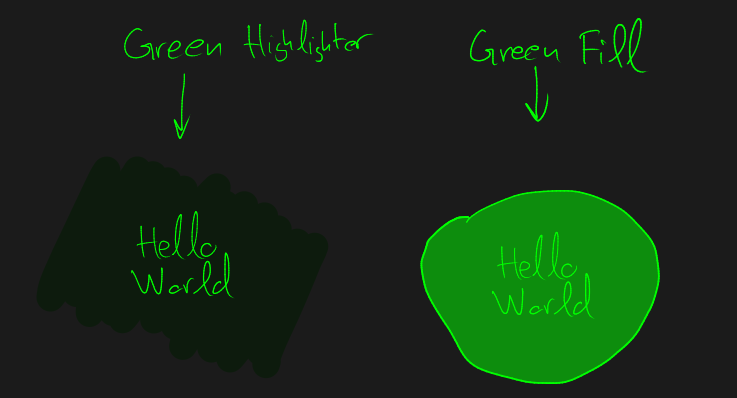 Green Highlighter
Green Fill
Hello
World
Hello
World